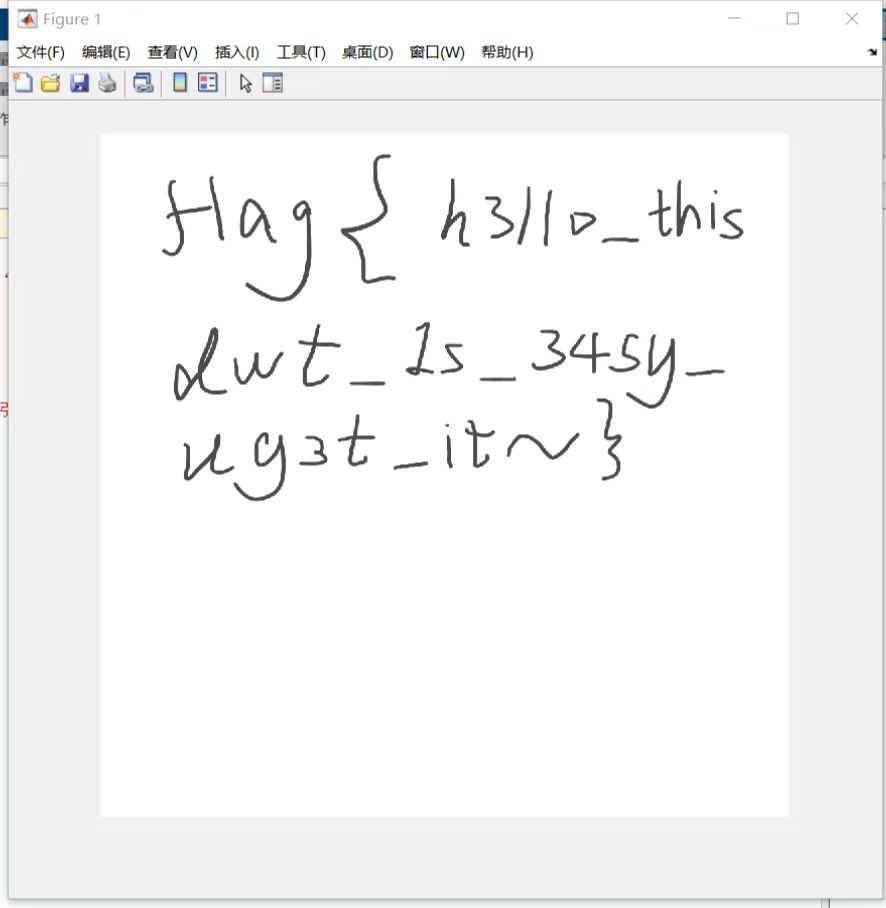 Figure 1
文件(F) 编辑(E) 查看(V) 插入(I) 工具(T) 桌面(D) 窗口(W) 帮助(H)
flag{h3llo_this
dwt_1s_345y_
ug3t_it~}